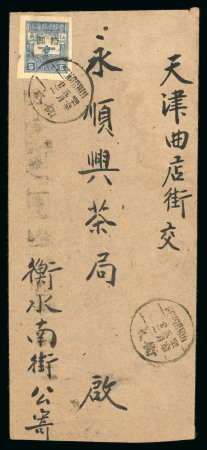 天津曲店街交
永順興茶局 啟
衡水南街公寄
5